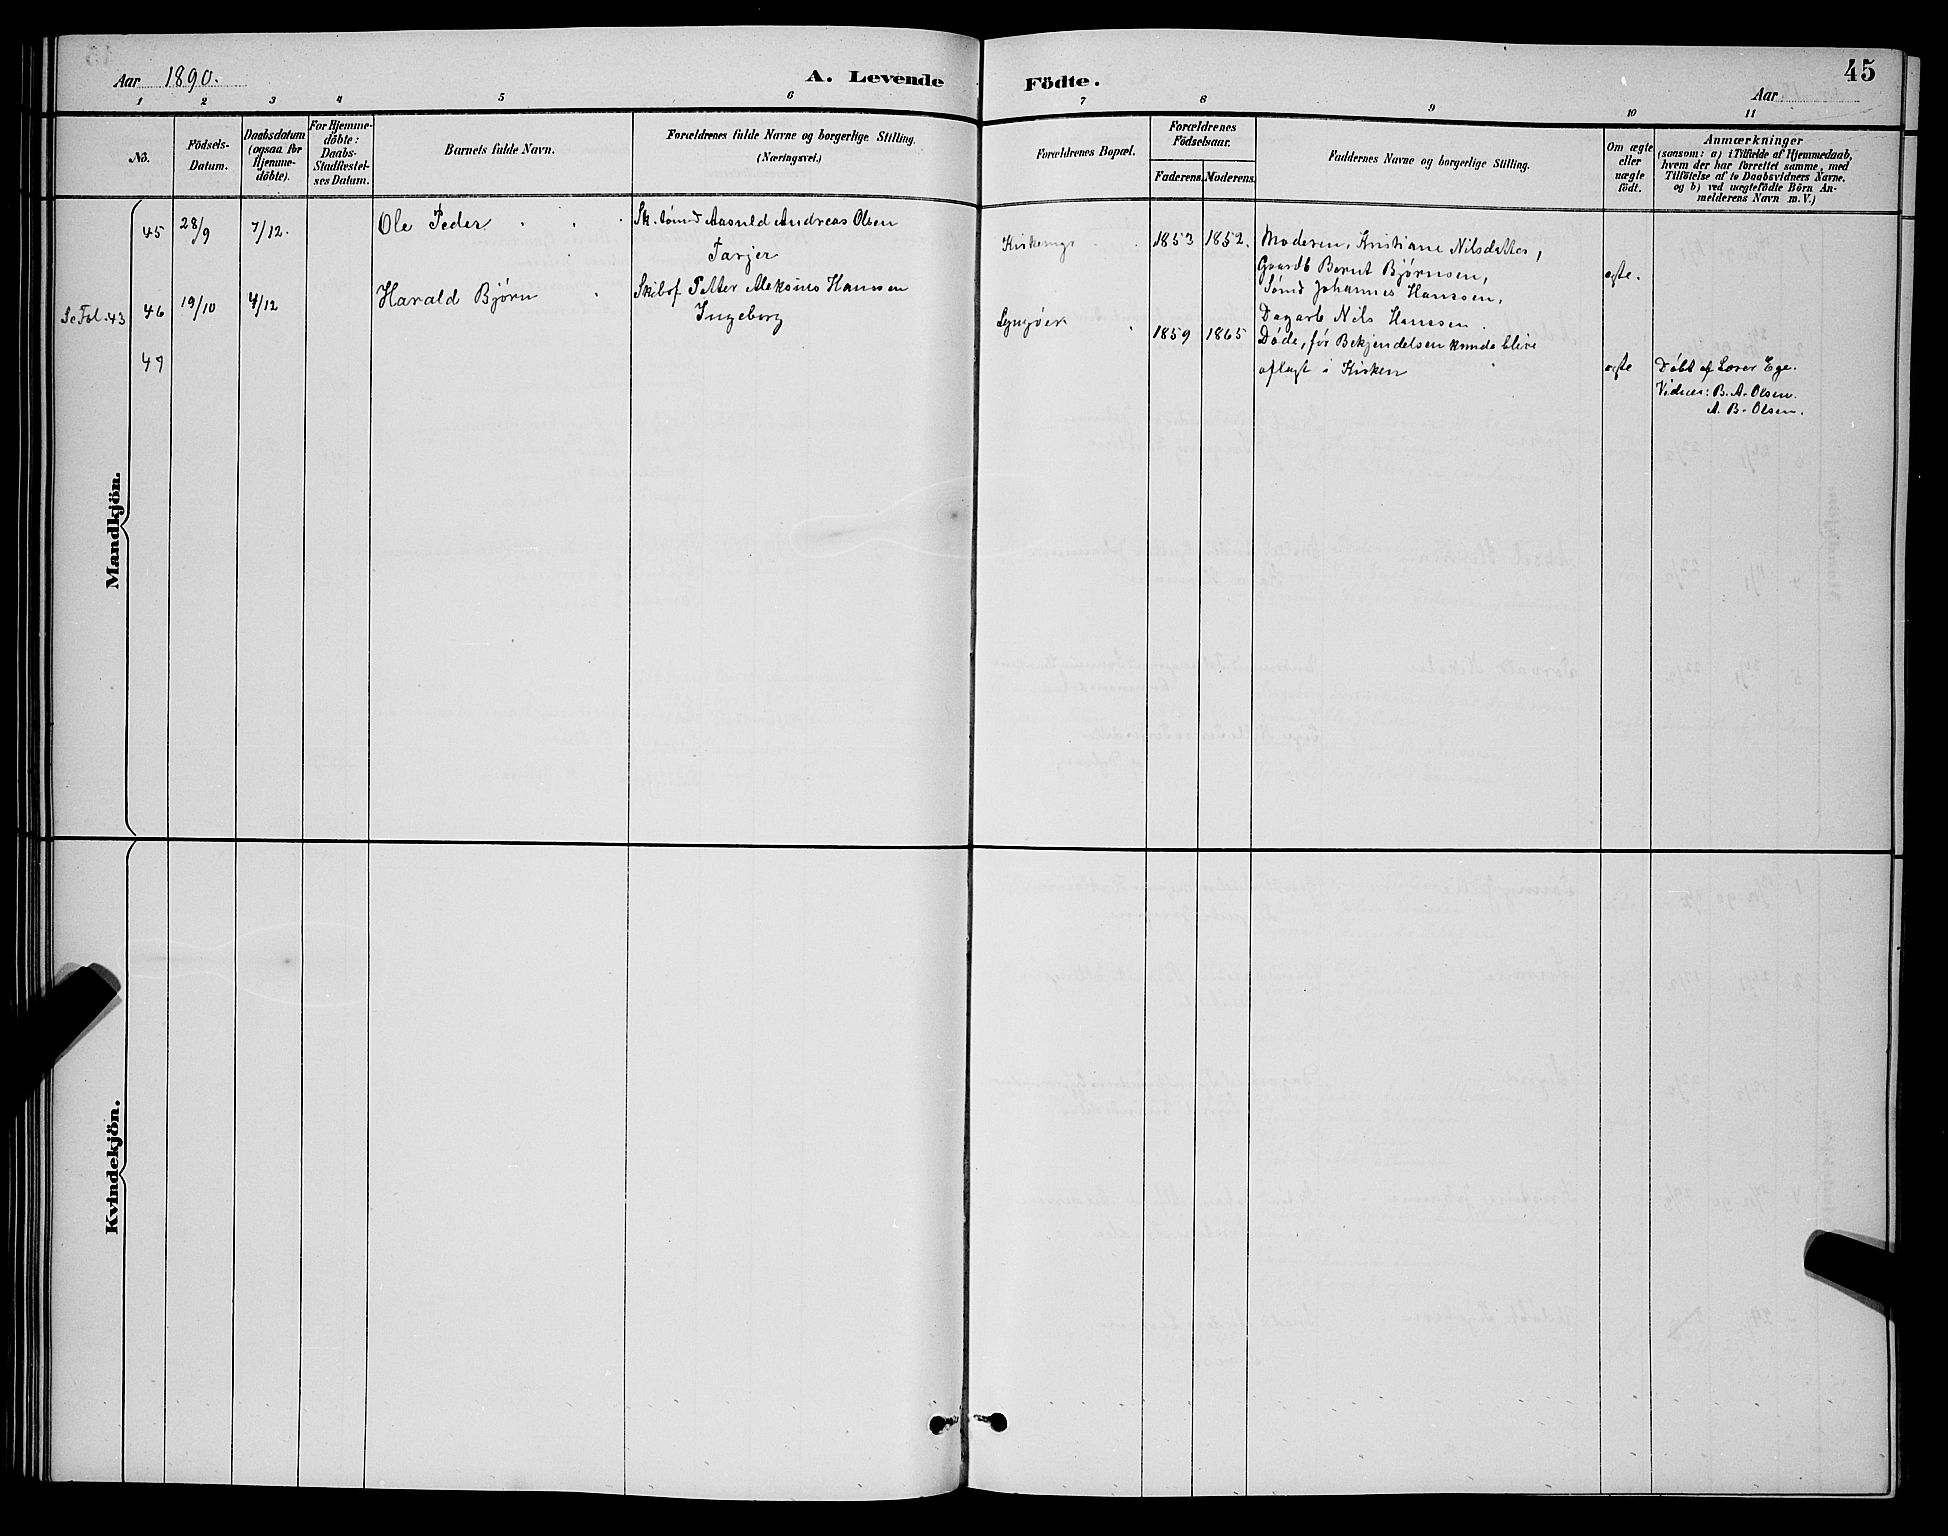 Aar 1890.
A. Levende
Födte.
45
Aar
1 2 3 4 5 6 7 8 9 10 11
No.
Födsels-
Datum.
Daabsdatum
(ogsaa for
Hjemme-
döbte).
For Hjemme-
döbte:
Daabs-
Stadfæstel-
ses Datum.
Barnets fulde Navn.
Forældrenes fulde Navne og borgerlige Stilling.
(Næringsvei.)
Forældrenes Bopæl.
Forældrenes
Födselsaar.
Faderens.
Moderens.
Faddernes Navne og borgerlige Stilling.
Om ægte
eller
uægte
födt.
Anmærkninger
(saasom: a) i Tilfælde af Hjemmedaab,
hvem der har forrettet samme, med
Tilföielse af to Daabsvidners Navne.
og b) ved uægtefödte Börn An-
melderens Navn m. V.)
Mandkjön.
45 28/9 7/12. Ole Peder
Sk. tømd Aasuld Andreas Olsen
Tarjer
Kirkemyr 1853 1852.
Moderen, Kristiane Nilsdatter,
Gaardb Bernt Bjørnsen,
Tømd Johannes Hanssen,
Dagarb Nils Hanssen.
ægte.
Se Fol. 43 46 19/10 4/12 Harald Bjørn
Skibsf Petter Aleksius Hanssen
Ingeborg
Lyngvær 1859 1865
Døde, før Bekjendelsen kunde blive
aflagt i Kirken
ægte
Døbt af Lærer Ege.
Vidner: B. A. Olsen.
A. B. Olsen.
47
Kvindekjön.